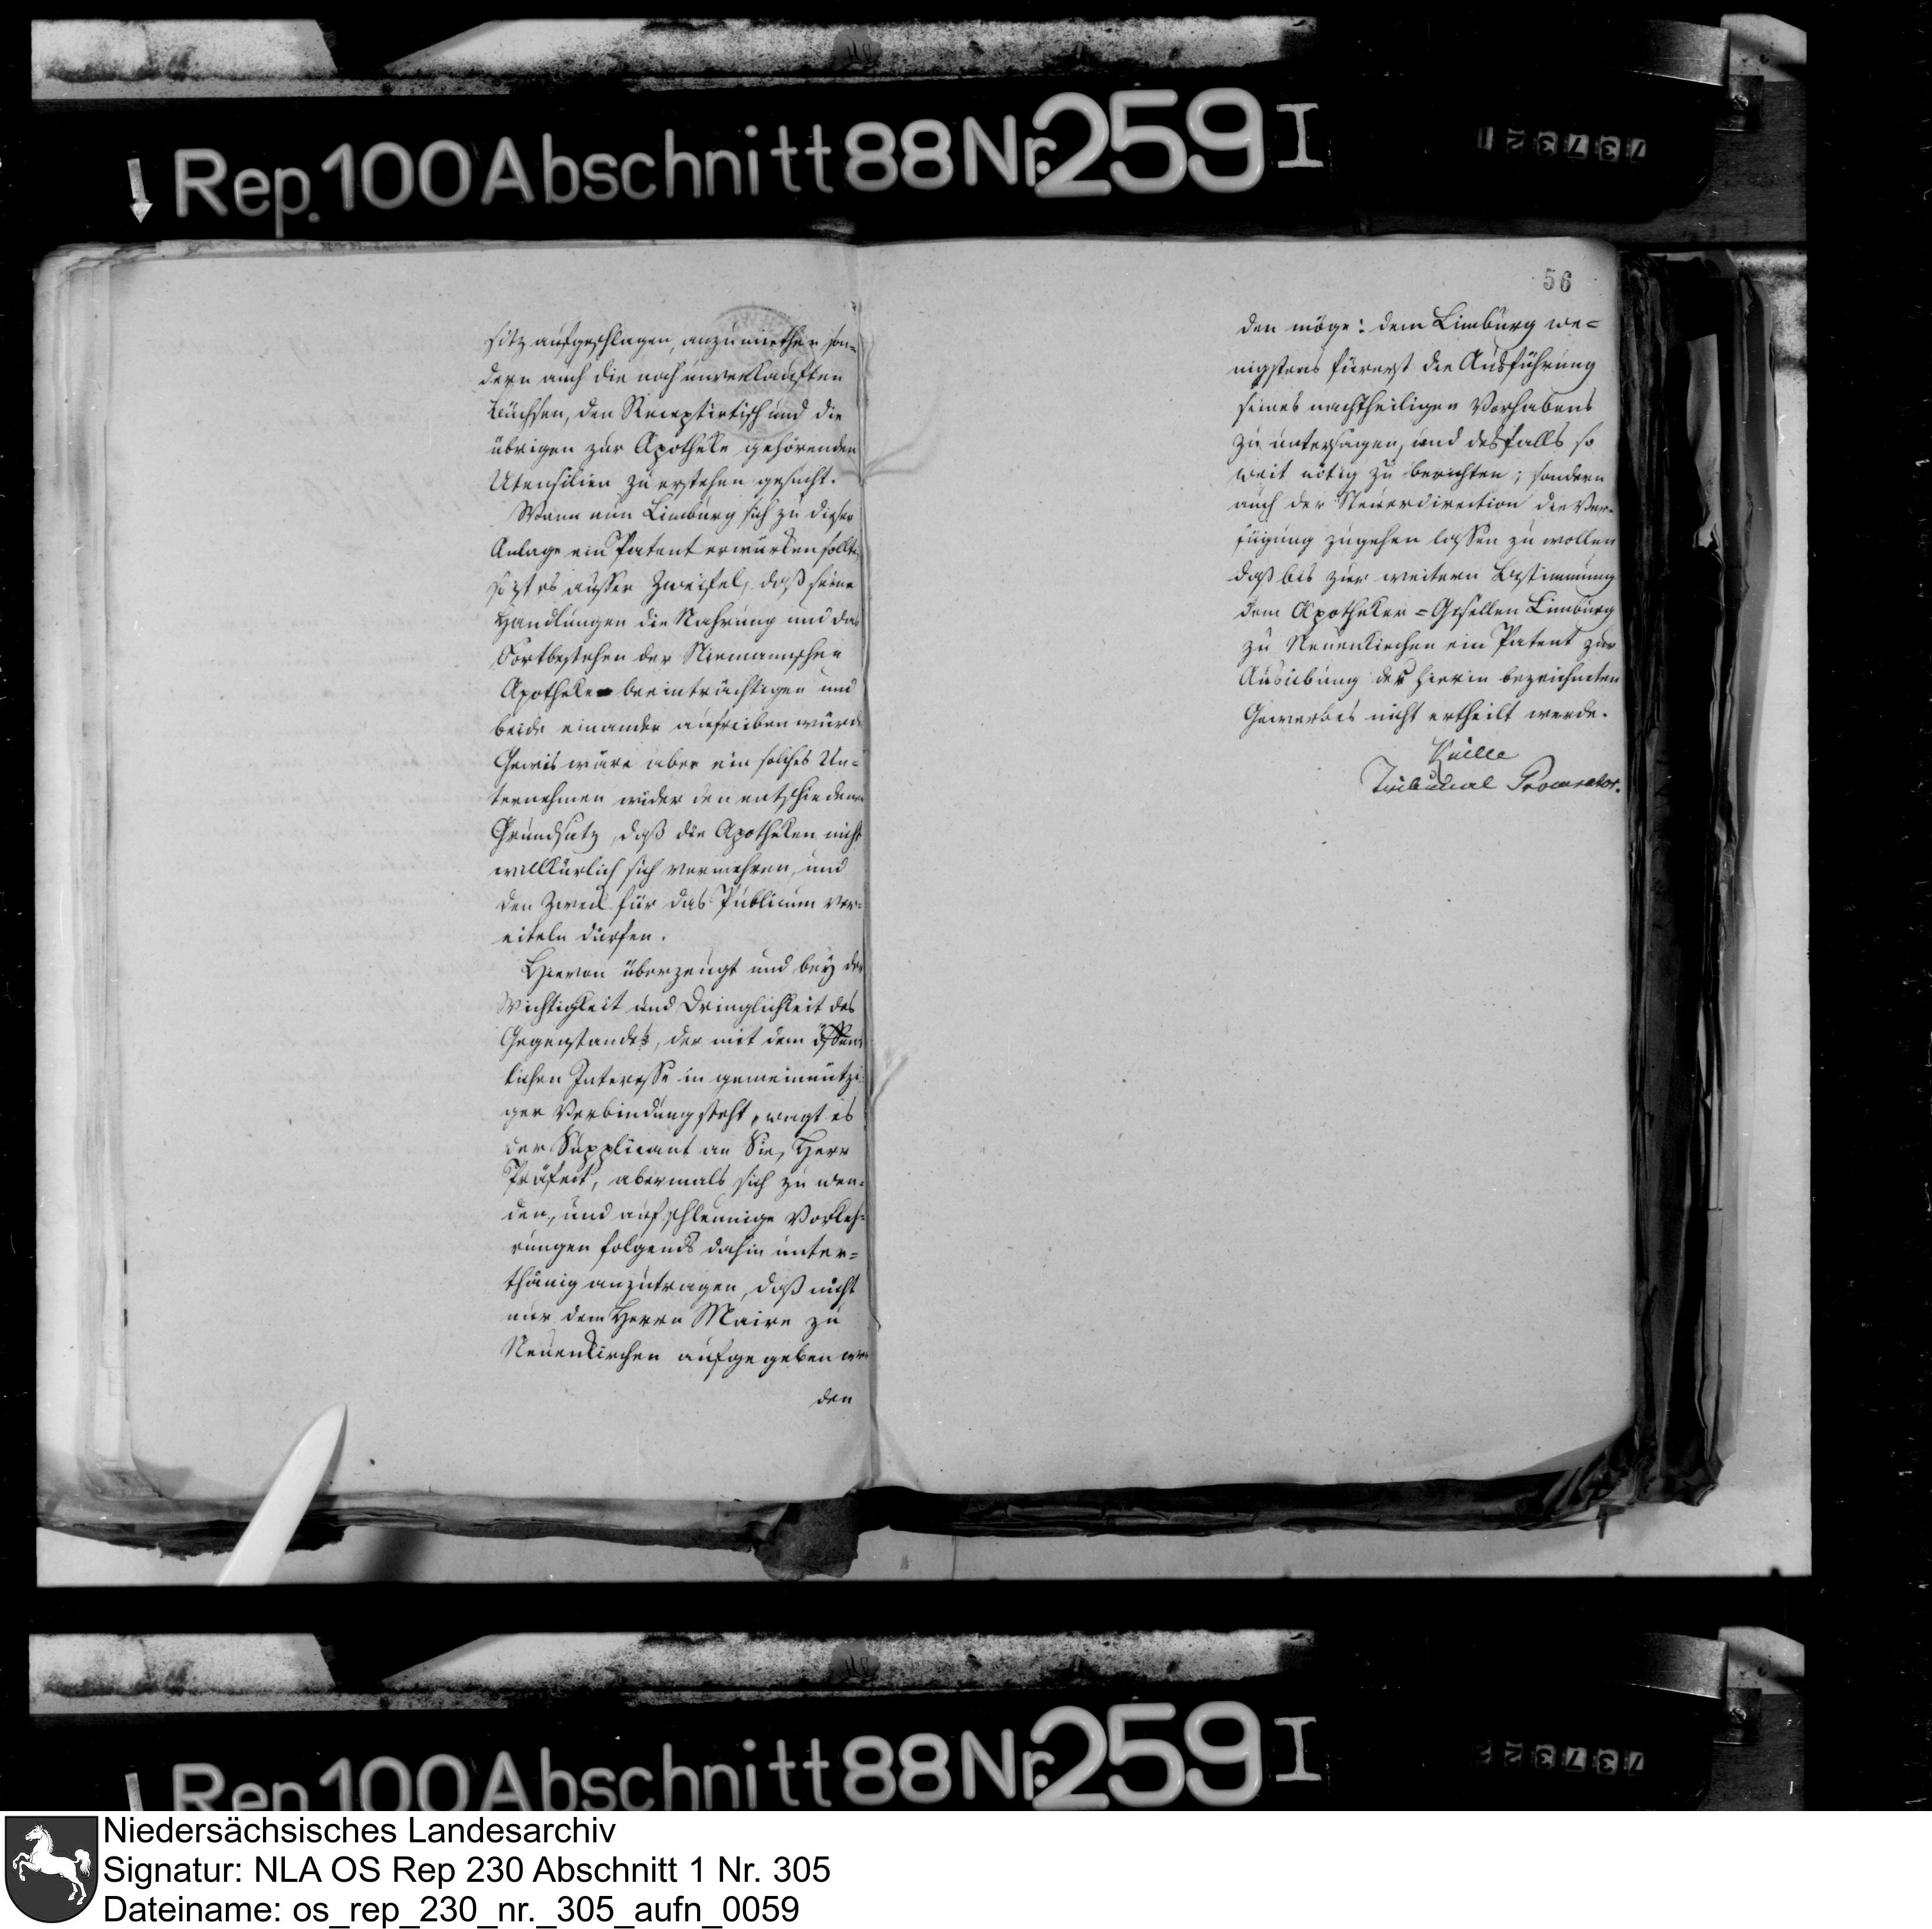 Rep. 100 Abschnitt 88 Nr. 259 I
737321
sitz aufgeschlagen, anzumiethen son=
dern auch die noch unverkauften
Büchsen, den Receptirtisch und die
übrigen zur Apotheke gehörenden
Utensilien zu erstehen gesucht.
Wann nun Limburg sich zu dieser
Anlage ein Patent erwürken sollte,
so ist es ausser Zweifel, daß seine
Handlungen die Nahrung und das
Fortbestehen der Niemannschen
Apotheke beeinträchtigen und
beide einander aufreiben würde
Gewis wäre aber ein solches Un=
ternehmen wider den entschiedenen
Grundsatz, daß die Apotheken nicht
willkürlich sich vermehren, und
den Zweck für das Publicum ver=
eiteln dürfen.
Hievon überzeugt und bey der
Wichtigkeit und Dringlichkeit des
Gegenstandes, der mit dem öffent
lichen Interesse in gemeinnützi=
ger Verbindung steht, wagt es
der Supplicant an Sie, Herr
Präfect, abermals sich zu wen=
den, und auf schleunige Vorkeh=
rungen folgends dahin unter=
thänig anzutragen, daß nicht
nur dem Herrn Maire zu
Neuenkirchen aufgegeben wer
den
56
den möge: dem Limburg we=
nigstens fürerst die Ausführung
seines nachtheiligen Vorhabens
zu untersagen, und desfalls so
weit nötig zu berichten; sondern
auch der Steuerdirection die Ver=
fügung zugehen lassen zu wollen
daß bis zur weitern Bestimmung
dem Apotheker=Gesellen Limburg
zu Neuenkirchen ein Patent zur
Ausübung des hierin bezeichneten
Gewerbes nicht ertheilt werde.
Tribunal Procurator.
Rep. 100 Abschnitt 88 Nr. 259 I
737322
Niedersächsisches Landesarchiv
Signatur: NLA OS Rep 230 Abschnitt 1 Nr. 305
Dateiname: os_rep_230_nr._305_aufn_0059